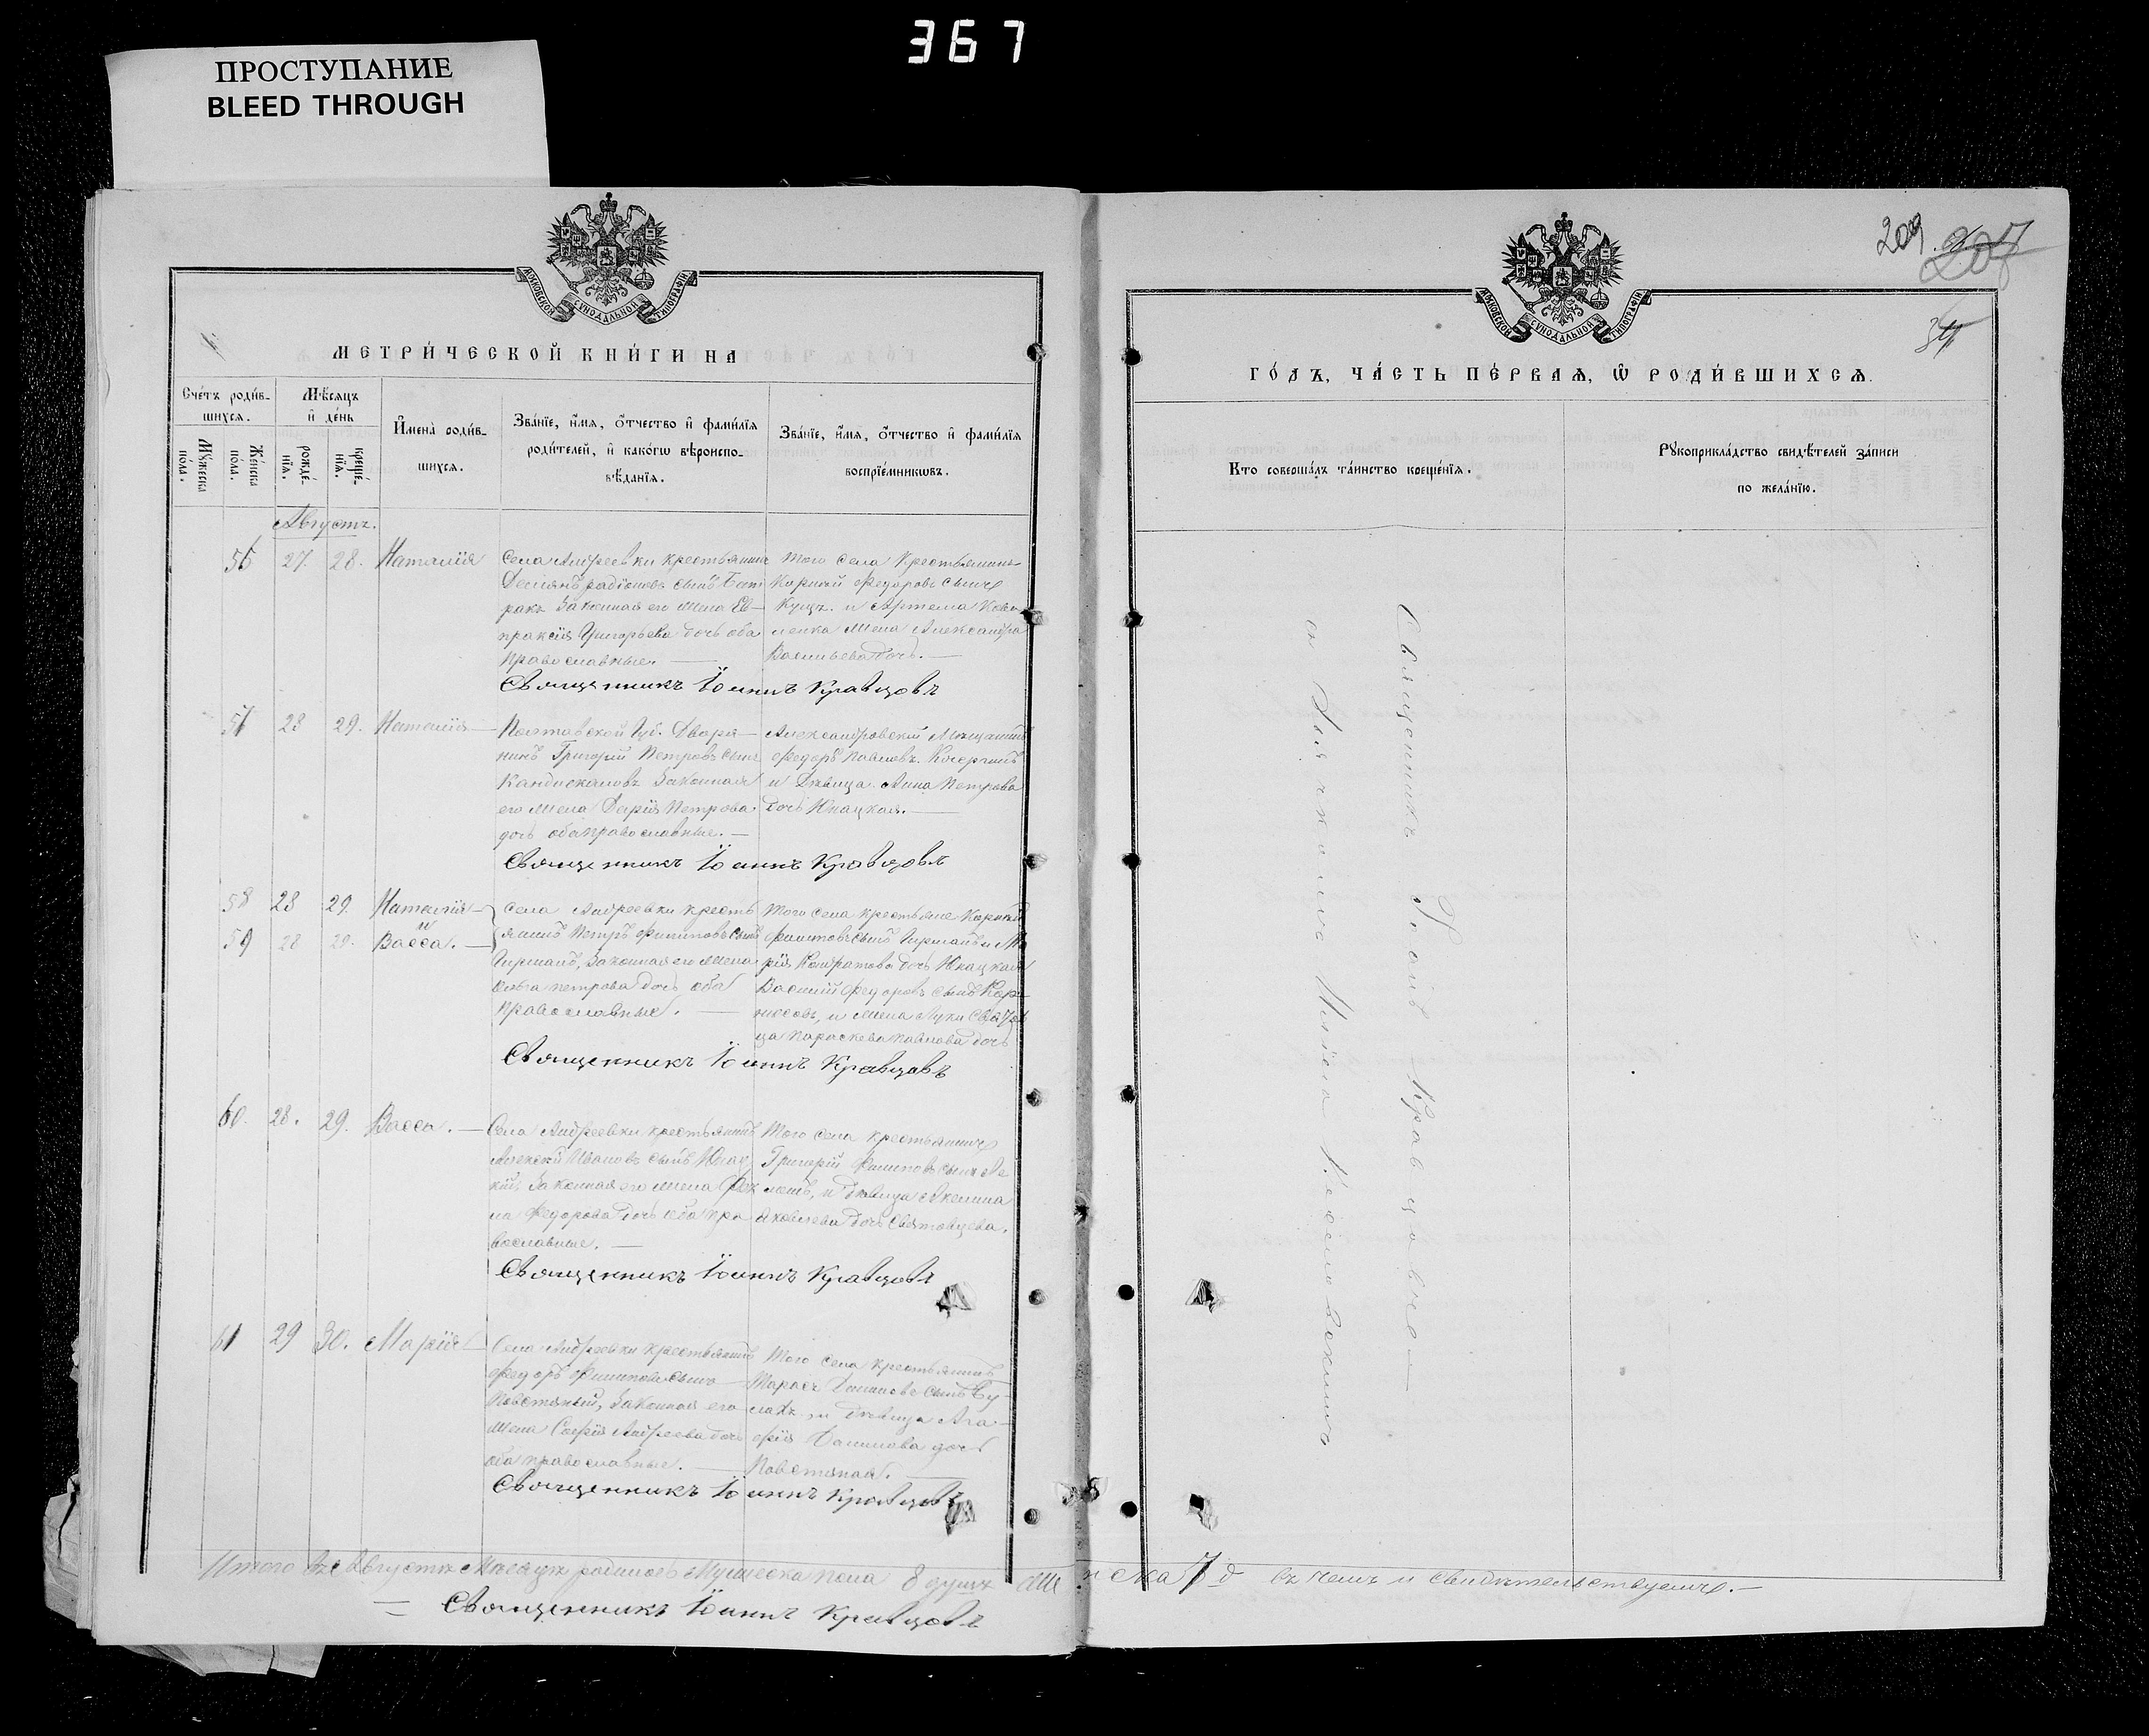 367
ПРОСТУПАНИЕ
BLEED THROUGH
МОСКОВСКОЙ СѴНОДАЛЬНОЙ ТИПОГРАФІИ
МЕТРИ́ЧЕСКОЙ КНИ́ГИ НА
Сче́тъ роди́в-
шихсѧ.
Мѣ́сѧцъ
и҆ де́нь
Мꙋ́жеска
по́ла.
Же́нска
по́ла.
рожде́-
нїѧ.
креще́-
нїѧ.
И҆мена̀ роди́в-
шихсѧ.
Зва́нїе, и҆́мѧ, ѻ҆́тчество и҆ фами́лїѧ
роди́телей, и҆ како́гѡ вѣроиспо-
вѣ́данїѧ.
Зва́нїе, и҆́мѧ, ѻ҆́тчество и҆ фами́лїѧ
воспрїе́мникѡвъ.
Августъ.
56 27. 28. Наталія
Села Андреевки крестьянинъ
Даміянъ Радіоновъ сынъ Бат
ракъ Законная его жена Ев-
праксія Григорьева дочь оба
православные.
Того села Крестьянинъ
Корней Федоровъ сынъ
Куцъ. и Артема Кова
ленка жена Александра
Васильева дочь.
Священникъ Іоаннъ Кравцовъ
57 28 29. Наталія
Полтавской Губ. Дворя-
нинъ Григорій Петровъ сынъ
Законная
его жена Дарія Петрова
дочь оба православные.
Александровскій Мѣщанинъ
Федоръ Павловъ. Кочергинъ
и Дѣвица Анна Петрова
дочь Юнацкая.
Священникъ Іоаннъ Кравцовъ
58 28 29. Наталія
и
59 28 29. Васса.
Села Андреевки кресть
янинъ Петръ Филиповъ сынъ
Законная его жена
Ольга Петрова дочь оба
православные.
Того села крестьяне Корней
Филиповъ сынъ и Ма
рія Кондратова дочь Юнацкая
Василій Федоровъ сынъ Кор-
и жена Луки
ца Параскева Павлова дочь
Священникъ Іоаннъ Кравцовъ
60. 28. 29. Васса.
Села Андреевки крестьянинъ
Алексѣй Ивановъ сынъ Юнац
кій, Законная его жена Фек
ла Федорова дочь оба пра
вославные.
Того села крестьянинъ
Григорій Филиповъ сынъ
и дѣвица Акелина
Яковлева дочь Святовцева.
Священникъ Іоаннъ Кравцовъ
61 29 30. Марія
Села Андреевки крестьянинъ
Федоръ Филиповъ сынъ
Повстяный, Законная его
жена Софія Андреева дочь
оба православные.
Того села крестьянинъ
Тарасъ Даниловъ сынъ Бу-
и дѣвица Ага-
фія Данилова дочь
Повстяная.
Священникъ Іоаннъ Кравцовъ
Итого въ Августѣ Мѣсяцѣ родилось Мужеска пола 8 душъ Же
Священникъ Іоаннъ Кравцовъ
209 207
34
МОСКОВСКОЙ СѴНОДАЛЬНОЙ ТИПОГРАФІИ
ГО́ДЪ, ЧА́СТЬ ПЕ́РВАѦ, Ѡ҆ РОДИ́ВШИХСѦ.
Кто̀ соверша́лъ та́инство креще́нїѧ.
Рꙋкоприкла́дство свидѣ́телей за́писи
по жела́нїю.
Священникъ Іоаннъ Кравцовъ
съ
нска 7 д въ чемъ и свидѣтельствуемъ.